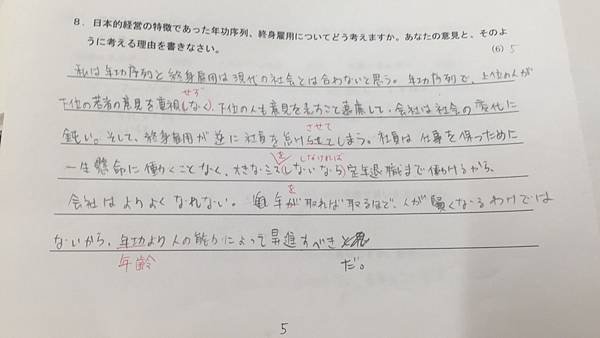 8. 日本的経営の特徴であった年功序列、終身雇用についてどう考えますか。あなたの意見と、そのよ
うに考える理由を書きなさい。
(6) 5
私は年功序列と終身雇用は現代の社会とは合わないと思う。年功序列で、上位の人が
せず
下位の若者の意見を重視しなく、下位の人も意見を出すこと遠慮して、会社は社会の変化に
させて
鈍い。そして、終身雇用が逆に社員を怠けらせてしまう。社員は仕事を保っために
を しなければ
一生懸命に働くことなく、大きなミス(しないなら)定年退職まで働けるから、
を
会社はよりよくなれない。年が取れば取るほど、人が賢くなるわけでは
ないから、年功より人の能力によって昇進すべき
年齢 だ。
5